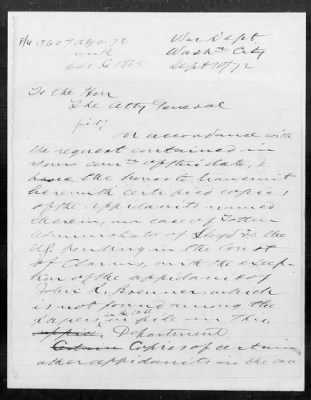 War Dept
Wash'n City
Sept 10/72
To the Hon
The Atty General
Sir;
In accordance with
the request contained in
your com'n of this date, I
have the honor to transmit
herewith certified copies
of the affidavits named
therein, in case of
Administrator of Lloyd vs. the
U.S. pending in the Court
of Claims, with the excep-
tion of the affidavit of
John R. which
is not found among the
papers in the case on file in this
Department
Copies of certain
other affidavits in the case